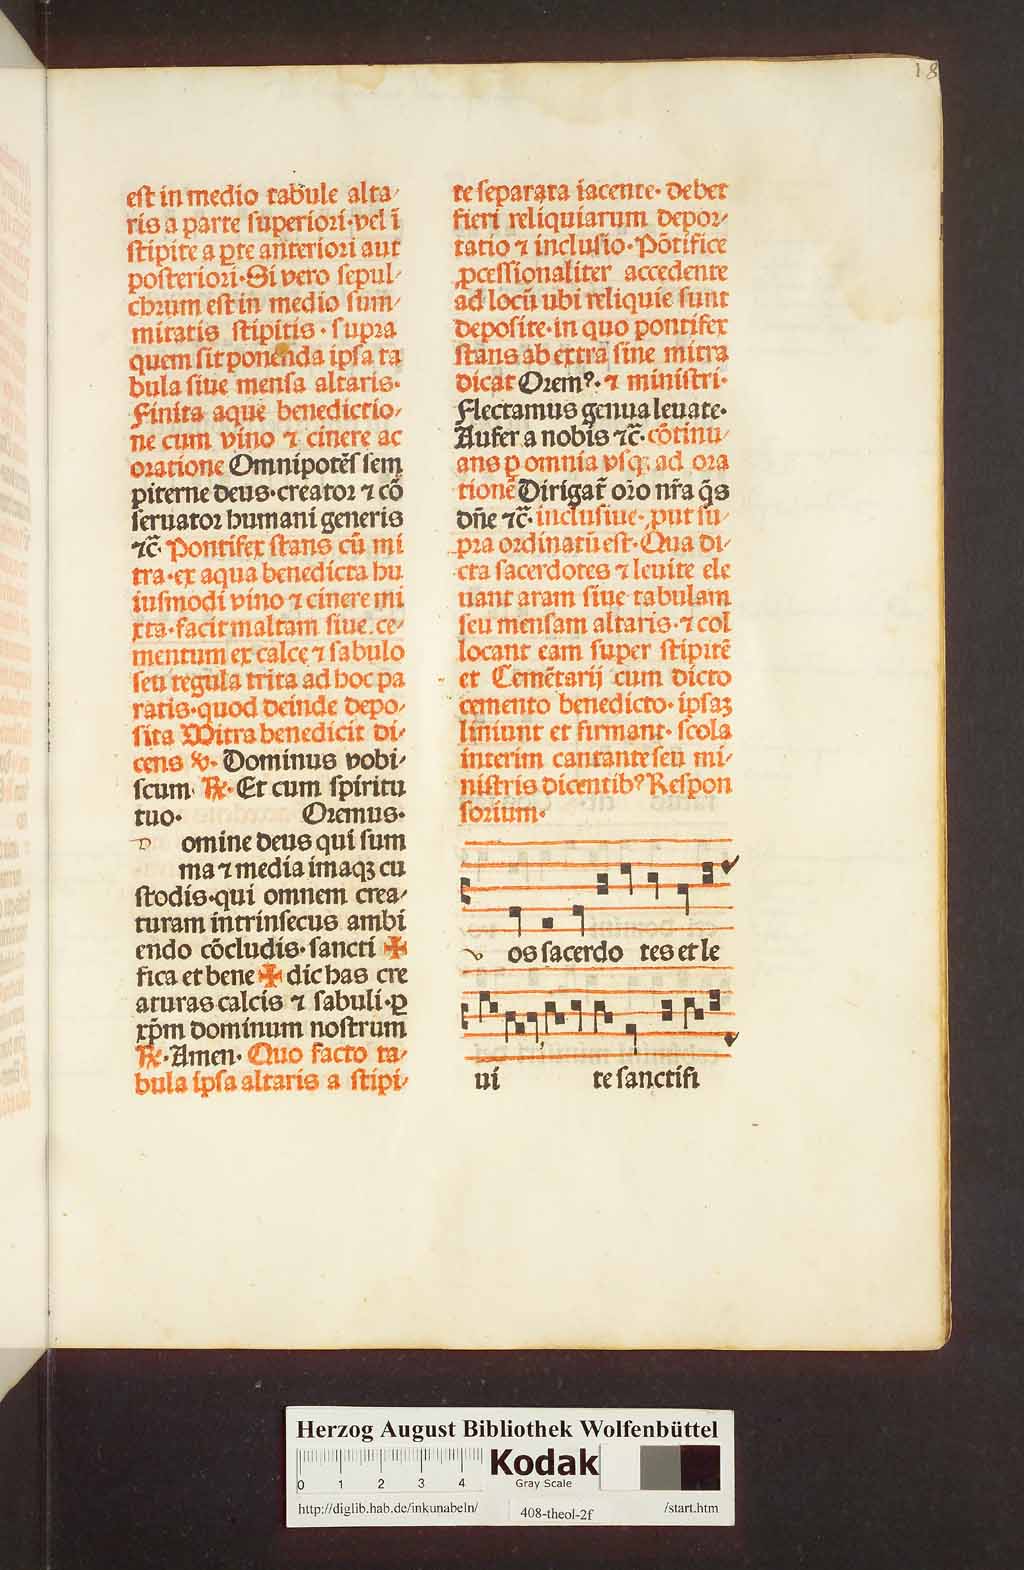 18
est in medio tabule alta/
ris a parte superiori·vel ī
stipite a ꝑte anteriori aut
posteriori·Si vero sepul/
chrum est in medio sum/
mitatis stipitis· supra
quem sit ponenda ipsa ta
bula siue mensa altaris·
Finita aque benedictio/
ne cum vino ⁊ cinere ac
oratione Omnipotēs sem
piterne deus·creator ⁊ cō
seruator humani generis
⁊c̄· Pontifex stans cū mi
tra·ex aqua benedicta hu
iusmodi vino ⁊ cinere mi
xta·facit maltam siue ce/
mentum ex calce ⁊ sabulo
seu tegula trita ad hoc pa
ratis·quod deinde depo/
sita Mitra benedicit di/
cens ℣· Dominus vobi/
scum· ℟· Et cum spiritu
tuo· Oremus·
D omine deus qui sum
ma ⁊ media imaqꝫ cu
stodis·qui omnem crea/
turam intrinsecus ambi
endo cōcludis·sancti ✠
fica et bene ✠ dic has cre
aturas calcis ⁊ sabuli·ꝑ
xp̄m dominum nostrum
℟·Amen· Quo facto ta/
bula ipsa altaris a stipi/
te separata iacente· debet
fieri reliquiarum depor/
tatio ⁊ inclusio·Pōtifice
ꝓcessionaliter accedente
ad locū ubi reliquie sunt
deposite·in quo pontifex
stans ab extra sine mitra
dicat Oremꝰ·⁊ ministri·
Flectamus genua leuate·
Aufer a nobis ⁊c̄·cōtinu/
ans ꝑ omnia vsqꝫ ad ora
tionē Dirigat̄ or̄o nr̄a q̄s
dn̄e ⁊c̄·inclusiue·ꝓut su/
pra ordinatū est·Qua di/
cta sacerdotes ⁊ leuite ele
uant aram siue tabulam
seu mensam altaris·⁊ col
locant eam super stipitē
et Cemētarij cum dicto
cemento benedicto·ipsaꝫ
liniunt et firmant·scola
interim cantante seu mi/
nistris dicentibꝰ Respon
sorium·
v os sacerdo tes et le
ui te sanctifi
Herzog August Bibliothek Wolfenbüttel
0 1 2 3 4
Kodak
Gray Scale
http://diglib.hab.de/inkunabeln/ 408-theol-2f /start.htm